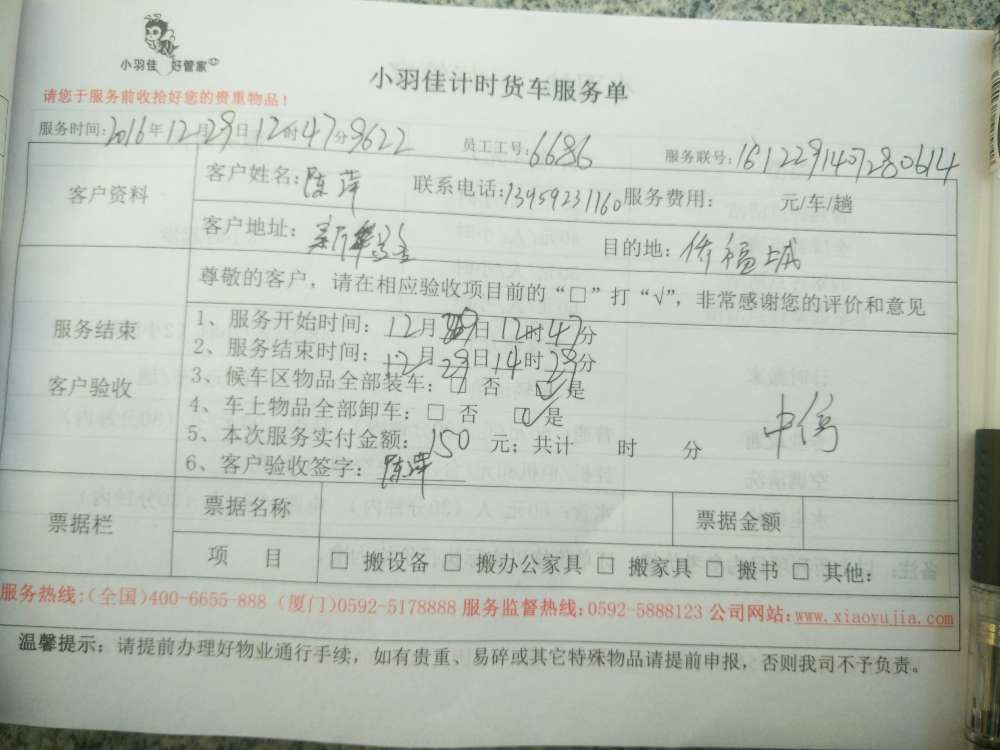 小羽佳 好管家
小羽佳计时货车服务单
请您于服务前收拾好您的贵重物品！
服务时间：2016年12月29日12时47分8622 员工工号：6686 服务联号：1612291407280614
客户资料
客户姓名：陈萍 联系电话：13459231160 服务费用： 元/车/趟
客户地址：新华 目的地：侨福城
尊敬的客户，请在相应验收项目前的“□”打“√”，非常感谢您的评价和意见
服务结束
客户验收
1、服务开始时间：12月29日12时47分
2、服务结束时间：12月29日14时28分
3、候车区物品全部装车：□ 否 ☑ 是
4、车上物品全部卸车：□ 否 ☑ 是
5、本次服务实付金额：150 元；共计 时 分
6、客户验收签字：陈萍
票据栏
票据名称 票据金额
项 目 □ 搬设备 □ 搬办公家具 □ 搬家具 □ 搬书 □ 其他：
服务热线:(全国)400-6655-888 (厦门)0592-5178888 服务监督热线:0592-5888123 公司网站:www.xiaoyujia.com
温馨提示：请提前办理好物业通行手续，如有贵重、易碎或其它特殊物品请提前申报，否则我司不予负责。